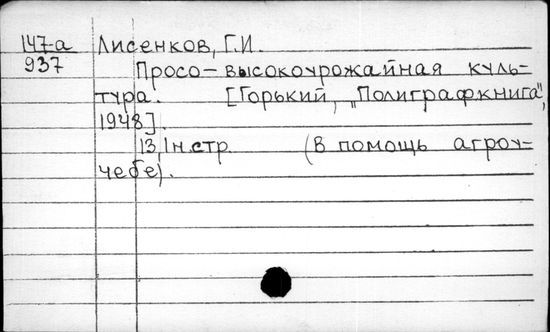 147-а Лисенков, Г.И.
937
Просо-высокоурожайная куль-
тура. [Горький, "Полиграфкнига",
1948].
13,1н.стр. (В помощь агроу-
чебе).